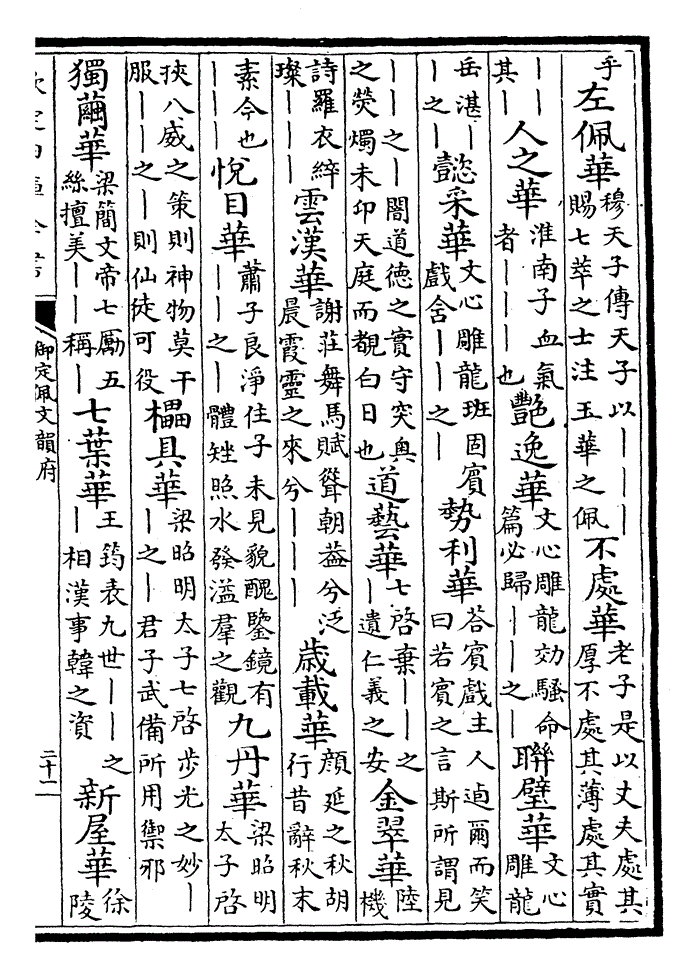 乎左佩華穆天子傳天子以｜｜｜賜七萃之士注玉華之佩不處華老子是以丈夫處其厚不處其薄處其實
｜｜其｜人之華淮南子血氣者｜｜｜也艷逸華文心雕龍効騷命篇必歸｜｜之｜聯璧華文心雕龍
岳湛｜｜之｜懿采華文心雕龍班固賓戲含｜｜之｜勢利華荅賓戲主人逌爾而笑曰若賓之言斯所謂見
｜｜之｜闇道德之實守突奥之熒燭未卬天庭而覩白日也道藝華七啓棄｜｜之｜遺仁義之安金翠華陸機
詩羅衣綷璨｜｜雲漢華謝莊舞馬賦聳朝葢兮泛晨霞靈之來兮｜｜｜歳載華顔延之秋胡行昔辭秋末
素今也｜｜｜悅目華蕭子良淨住子未見貌醜鑒鏡有｜｜之｜體矬照水發溢羣之觀九丹華梁昭明太子啓
挾八威之策則神物莫干服｜｜之｜則仙徒可役櫑具華梁昭明太子七啓歩光之妙｜｜｜之｜君子武備所用禦邪
獨繭華梁簡文帝七勵五絲擅美｜｜稱｜七葉華王筠表九世｜｜之｜相漢事韓之資新屋華徐陵
欽定四庫全書
御定佩文韻府
二十一